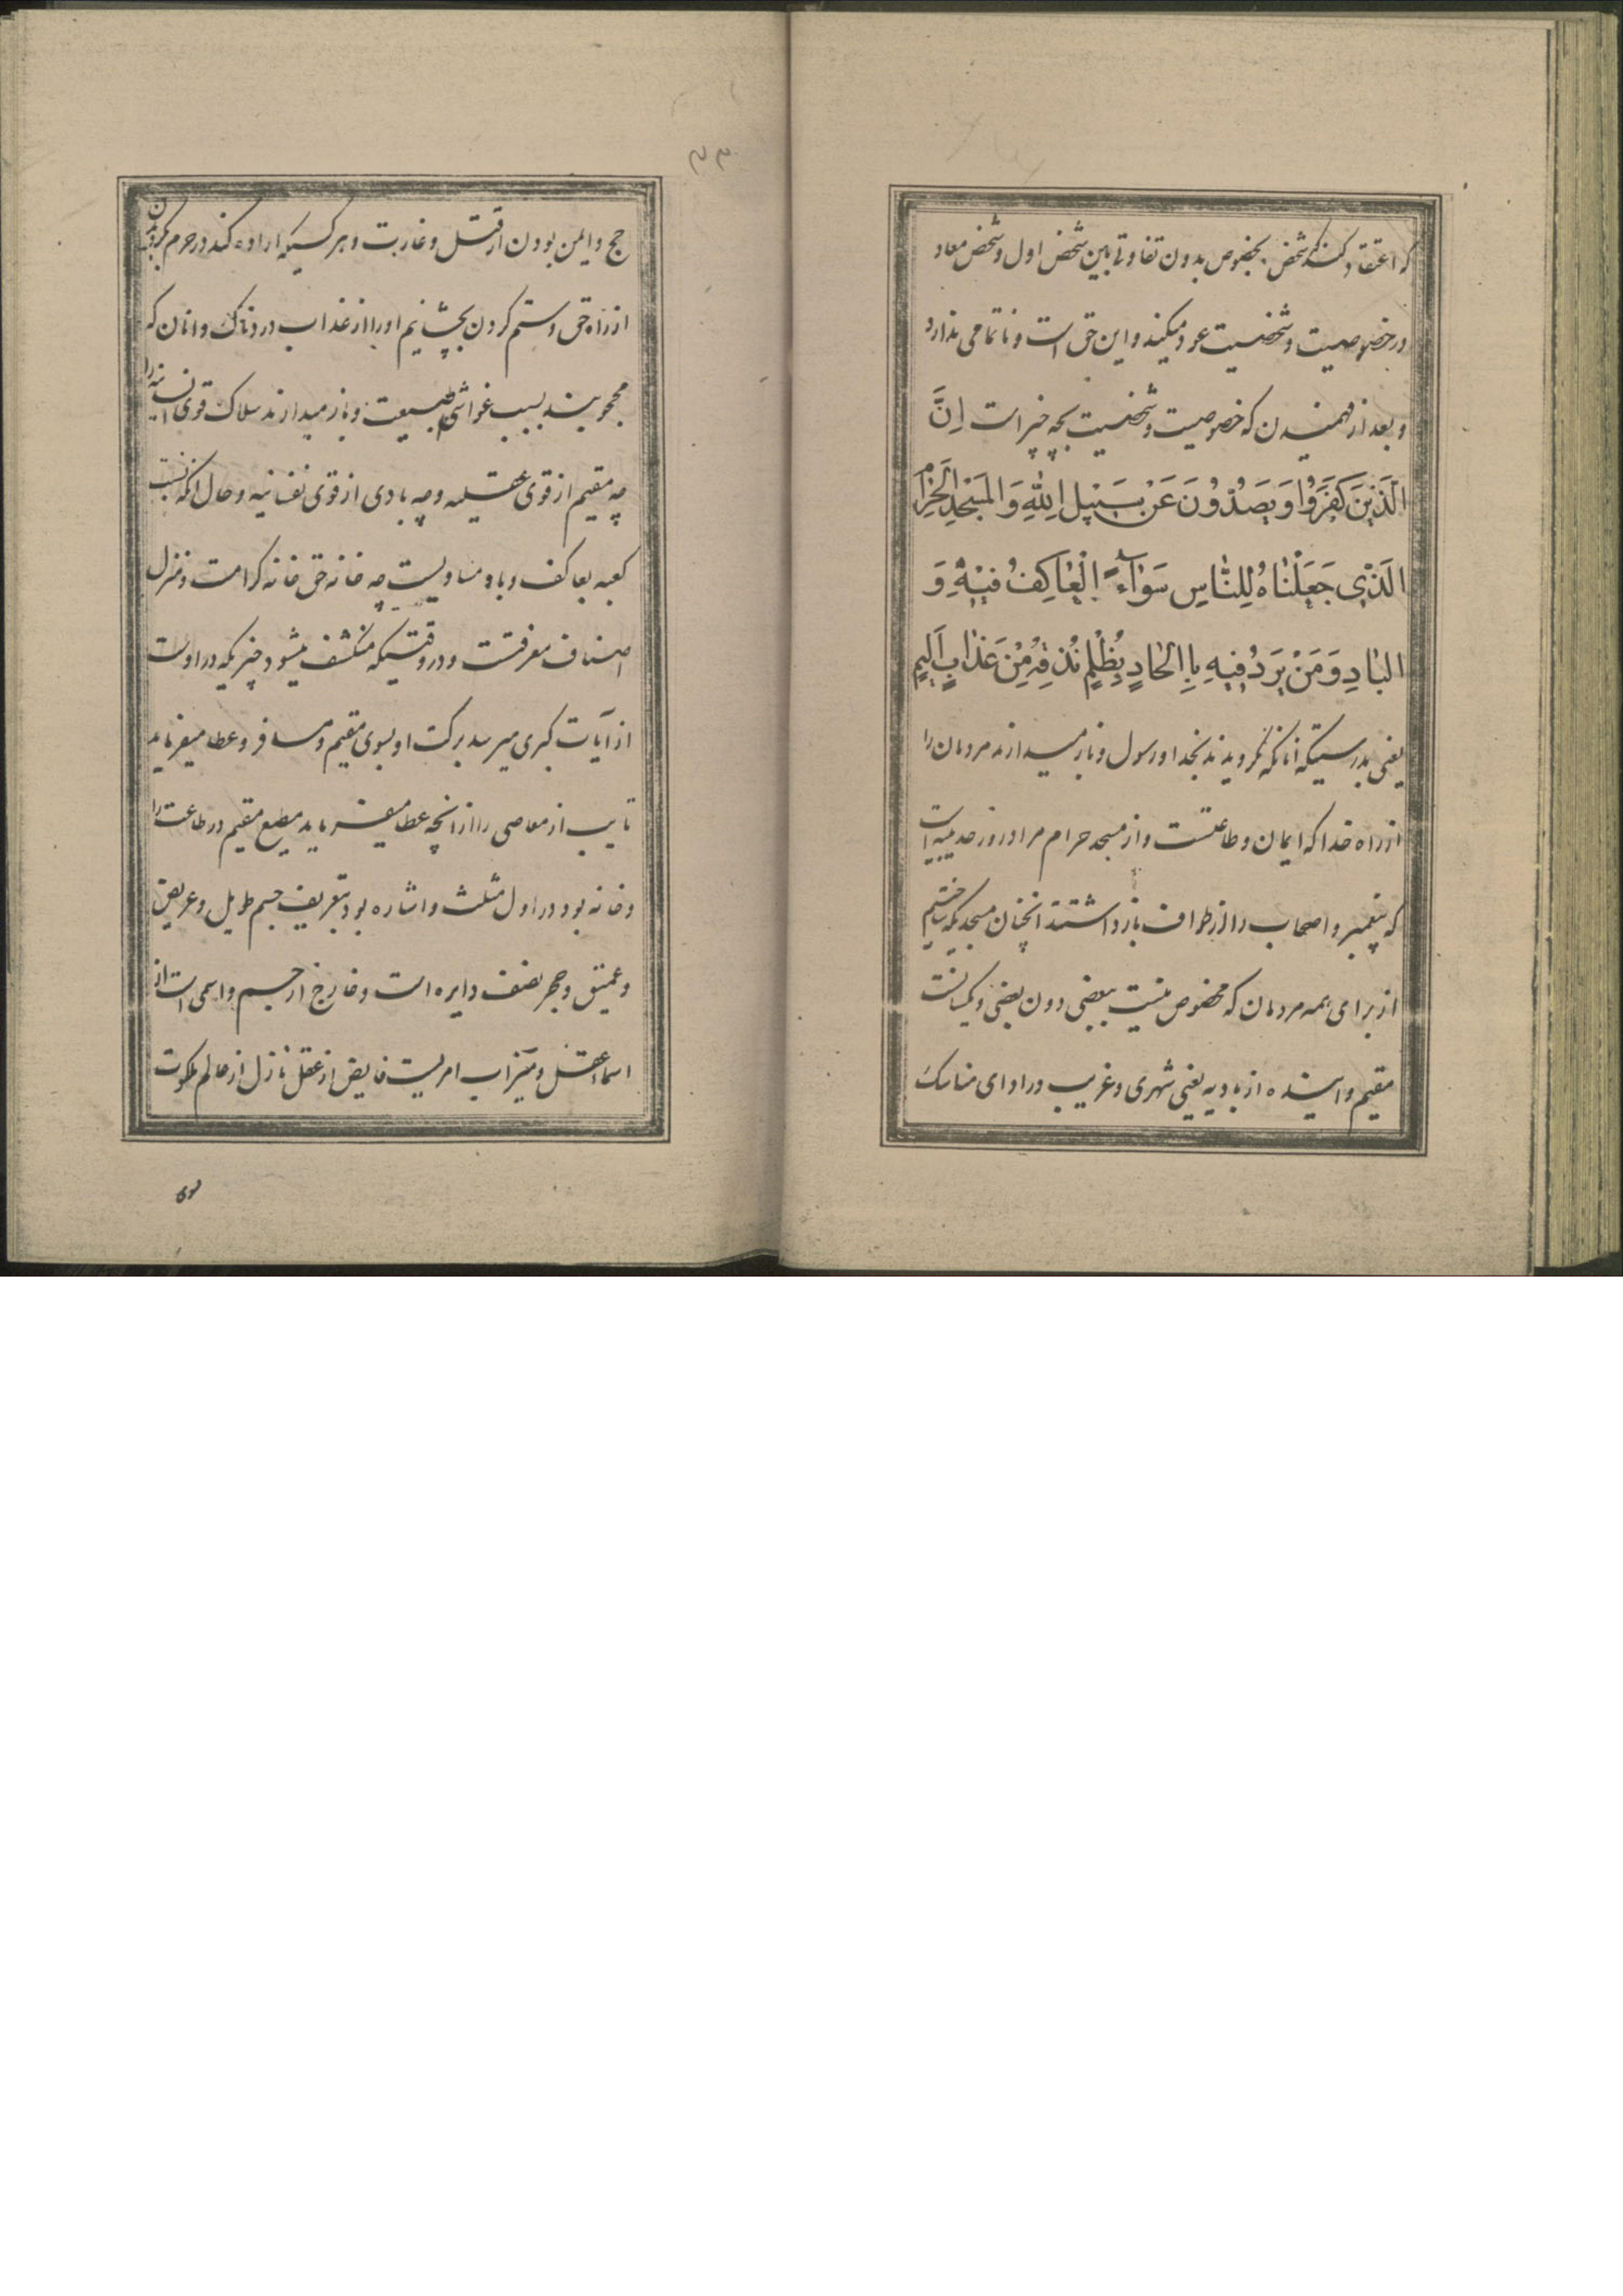 که اعتقاد کند که شخص بخصوص بدون تفاوتی بین شخص اول و شخص معاد
در خصوصیت و شخصیت عود میکند و این حق است و ناتمامی ندارد
و بعد از فهمیدن که خصوصیت و شخصیت بچه چیز است اِنَّ
الَّذینَ کَفَرُوا وَ یَصُدُّونَ عَنْ سَبیلِ اللهِ وَ المَسْجِدِ الحَرامِ
الَّذی جَعَلْناهُ لِلنّاسِ سَوآءً الْعاکِفُ فیهِ وَ
البادِ وَ مَنْ یَرِدُ فیهِ بِاِلحادٍ بِظُلْمٍ نُذِقْهُ مِنْ عَذابٍ اَلیمٍ
یعنی بدرستیکه آنانکه نکرویدند بخدا و رسول و باز میدارند مردمان را
از راه خدا که ایمان و طاعتست و از مسجد حرام مراد روز حدیبیه است
که پیغمبر و اصحاب را از طواف باز داشتند انچنان مسجدیکه ساختیم
از برای همه مردمان که مخصوص نیست ببعضی دون بعضی و یکسانست
مقیم و آینده از بادیه یعنی شهری و غریب در ادای مناسک
۲۳
حج و ایمن بودن از قتل و غارت و هر کسیکه اراده کند در حرم بکردیدن
از راه حق و ستم کردن بچشانیم او را از عذاب دردناک و انان که
محجوبند بسبب غواشی طبیعت و باز میدارند سلاک قوی انسانیه را
چه مقیم از قوی عقلیه و چه بادی از قوی نفسانیه و حال آنکه نسبت
کعبه بعاکف و باد مساویست چه خانه حق خانه کرامت و منزل
اصناف معرفتست و در وقتیکه منکشف میشود چیزیکه در اوست
از آیات کبری میرسد برکت او بسوی مقیم و مسافر و عطا میفرماید
تایب از معاصی را از انچه عطا میفرماید مطیع مقیم در طاعت را
و خانه بود در اول مثلث و اشاره بود بتعریف جسم طویل و عریض
و عمیق و حجر نصف دایره است و خارج از جسم و اسمی است از
اسماء عقل و میزاب امریست فایض از عقل نازل از عالم ملکوت